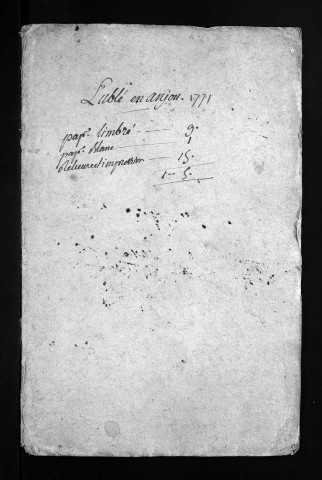 Lublé en anjou. 1771
papr. timbré — 9.
papr. blanc — 1
Relieure et impression 15.
1 - 5.